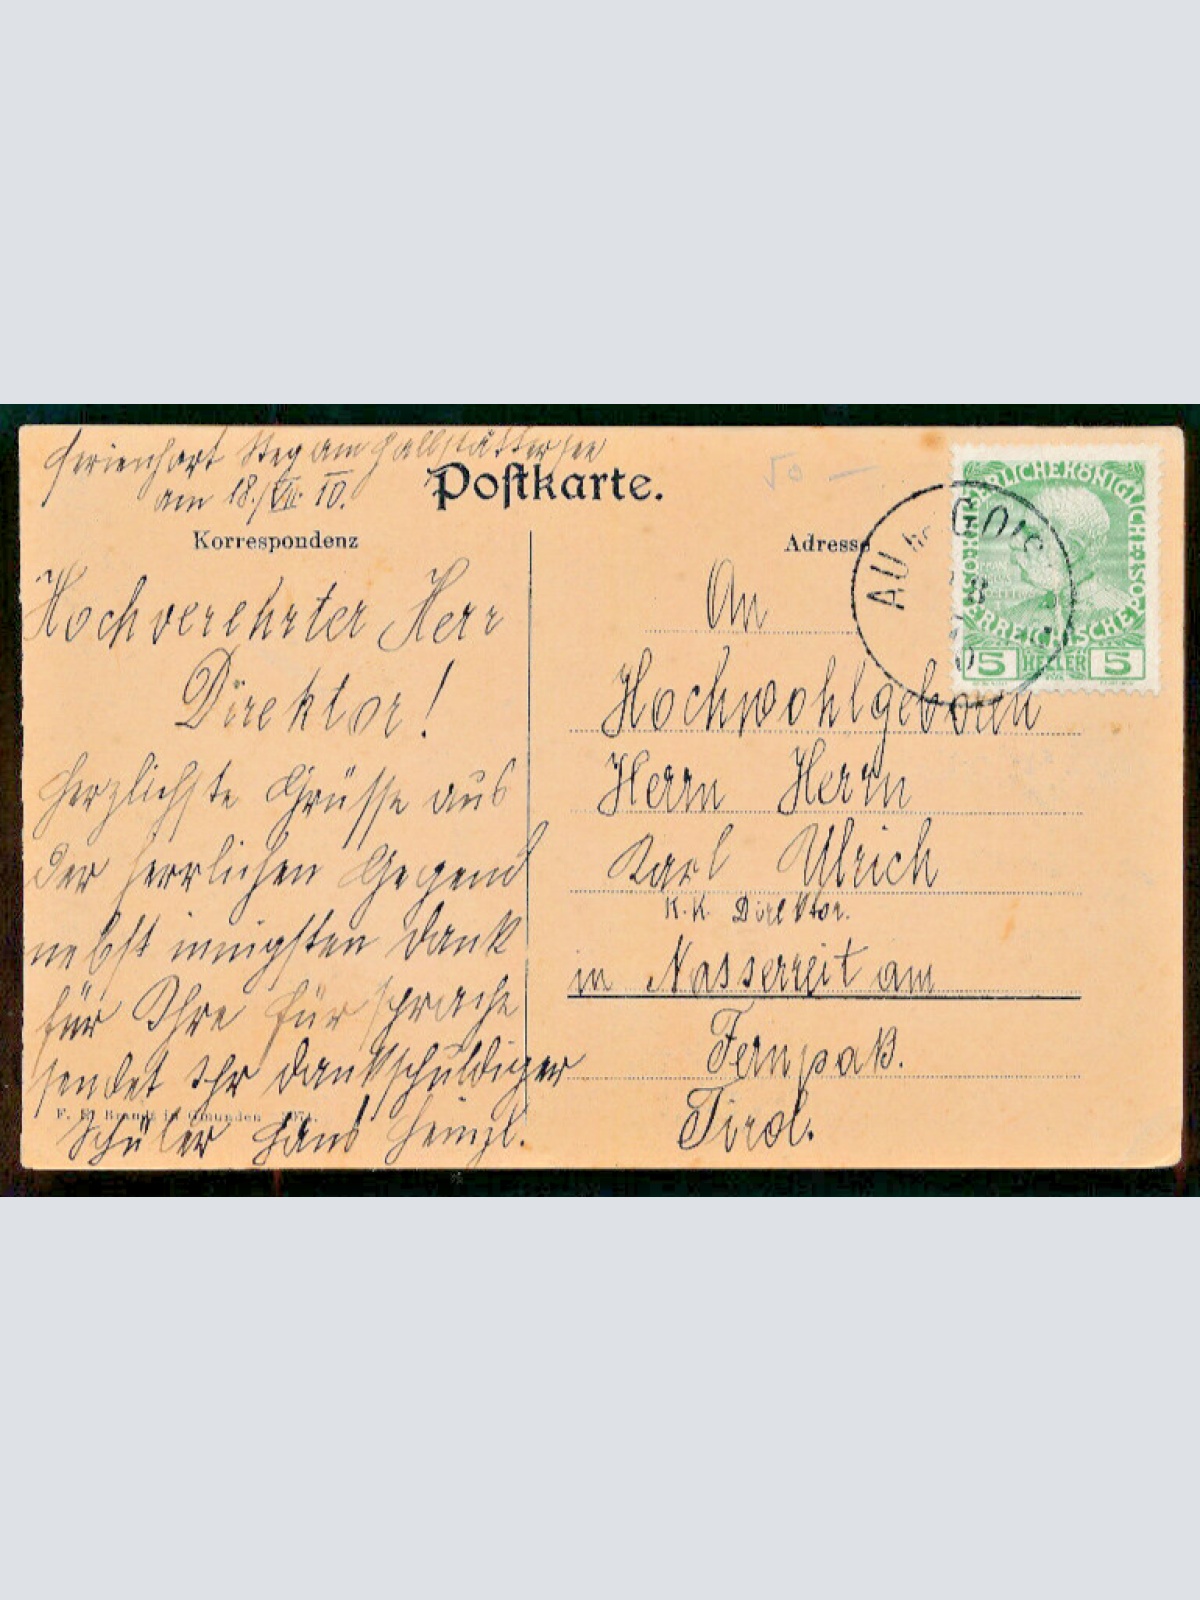 Ferienhort Steg am Hallstättersee
am 18./VII. 10.
Postkarte.
50 —
Korrespondenz
Adresse
Hochverehrter Herr
Direktor!
Herzlichste Grüsse aus
der herrlichen Gegend
nebst innigsten Dank
für Ihre Fürsprache
sendet Ihr dankschuldiger
Schüler Hans Heinzl.
F. E. Brandt in Gmunden
An
Hochwohlgeboren
Herrn Herrn
Karl Ulrich
K. K. Direktor.
in Nasserreit am
Fernpaß.
Tirol.
AU bei GOIS
18
10
5 HELLER 5